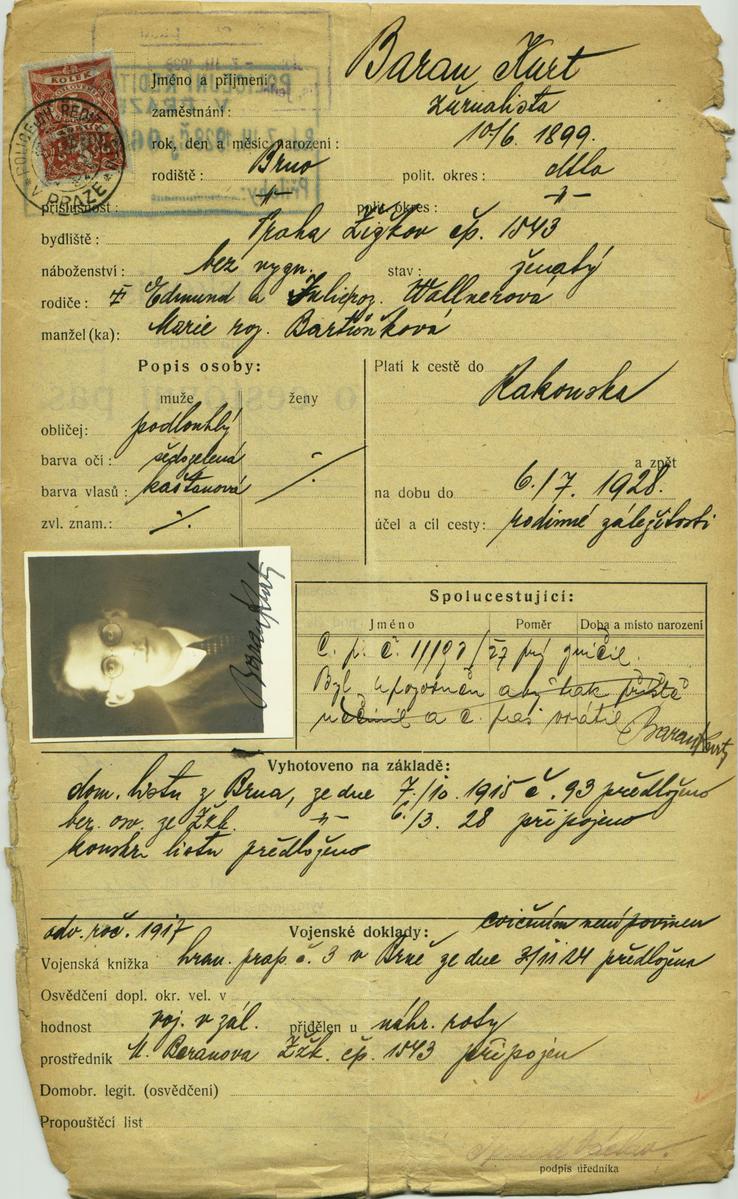 KOLEK
POLICEJNÍ ŘED
V PRAZE
Jméno a příjmení: Baran Kurt
zaměstnání: žurnalista
rok, den a měsíc narození: 10/6. 1899.
rodiště: Brno polit. okres: dtto
příslušnost: -"- polit. okres: -"-
bydliště: Praha Žižkov čp. 1543
náboženství: bez vyzn. stav: ženatý
rodiče: Edmund a Julie roz. Wallnerová
manžel(ka): Marie roz. Bartůňková
Popis osoby:
muže ženy
obličej: podlouhlý
barva očí: šedozelená
barva vlasů: kaštanová
zvl. znam.: ./.
./.
Platí k cestě do
Rakouska
a zpět
na dobu do 6./7. 1928.
účel a cíl cesty: rodinné záležitosti
Baran Kurt
Spolucestující:
Jméno Poměr Doba a místo narození
C. p. č. 11197/27 prý zničil.
Byl upozorněn aby tak příště
neučinil a c. pas vrátil
Baran Kurt
Vyhotoveno na základě:
dom. listu z Brna, ze dne 7./10. 1915 č. 93 předloženo
ber. osv. ze Žžk. -"- 6./3. 28 připojeno
konskr. listu předloženo
odv. roč. 1917 Vojenské doklady: cvičením není povinen
Vojenská knížka hran. prap. č. 3 v Brně ze dne 3/11 24 předložena
Osvědčení dopl. okr. vel. v
hodnost voj. v zál. přidělen u náhr. roty
prostředník M. Baranova Žžk. čp. 1543 připojen
Domobr. legit. (osvědčení)
Propouštěcí list
podpis úředníka